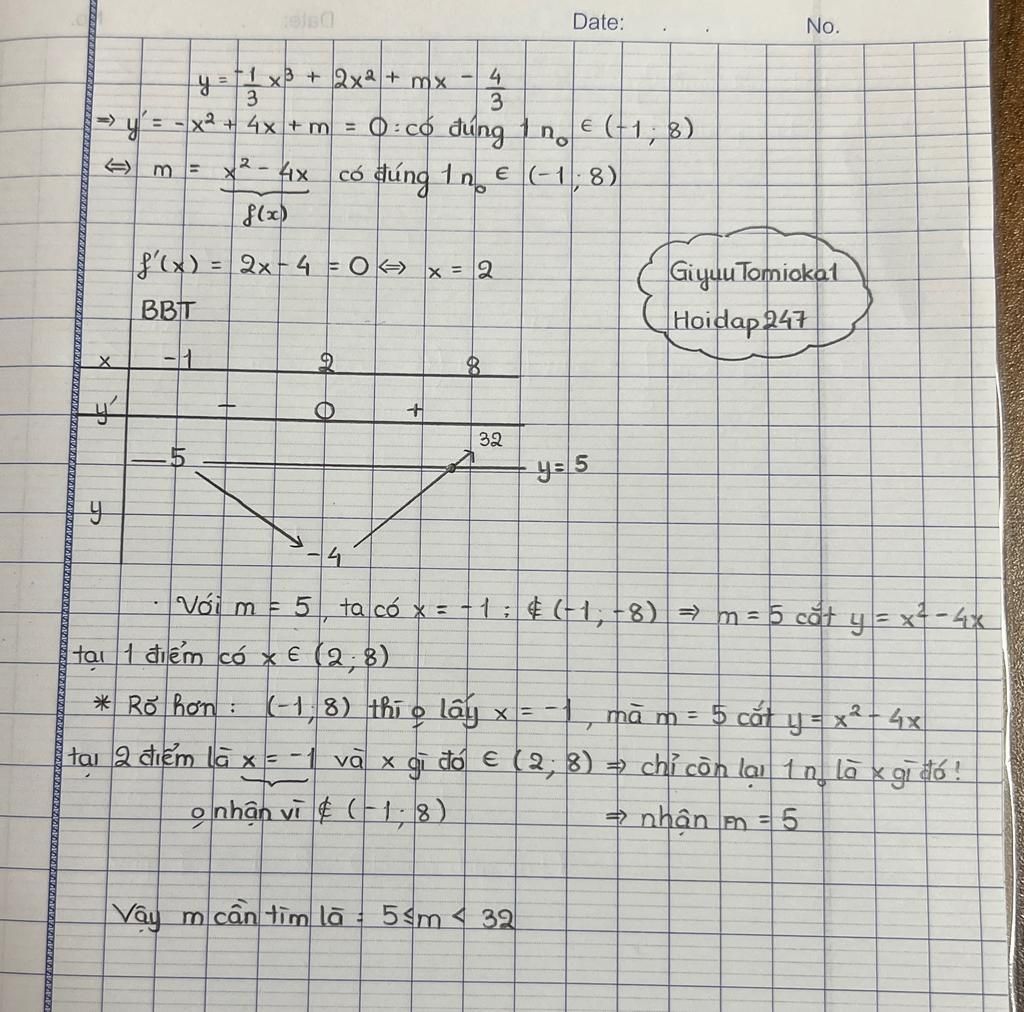 Date: . . No.
y = -1/3 x³ + 2x² + mx - 4/3
⇒ y' = -x² + 4x + m = 0 : có đúng 1 n₀ ∈ (-1; 8)
⇔ m = x² - 4x có đúng 1 n₀ ∈ (-1; 8)
f(x)
f'(x) = 2x - 4 = 0 ⇔ x = 2
GiyuuTomioka1
Hoidap247
BBT
x -1 2 8
y' - 0 +
32
5 y = 5
y
-4
. Với m = 5, ta có x = -1 ; ∉ (-1; -8) ⇒ m = 5 cắt y = x² - 4x
tại 1 điểm có x ∈ (2; 8)
* Rõ hơn : (-1; 8) thì o lấy x = -1, mà m = 5 cắt y = x² - 4x
tại 2 điểm là x = -1 và x gì đó ∈ (2; 8) ⇒ chỉ còn lại 1 n₀ là x gì đó!
o nhận vì ∉ (-1; 8) ⇒ nhận m = 5
Vậy m cần tìm là : 5 ≤ m < 32